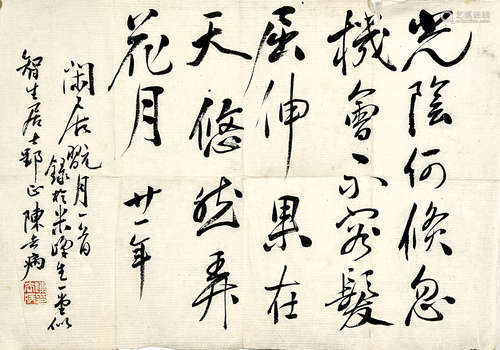 光陰何倏忽
機會不容髮
屈伸果在
天悠然弄
花月 廿一年
閑居翫月一首
錄於米峰生一堂似
智生居士郢正 陳去病